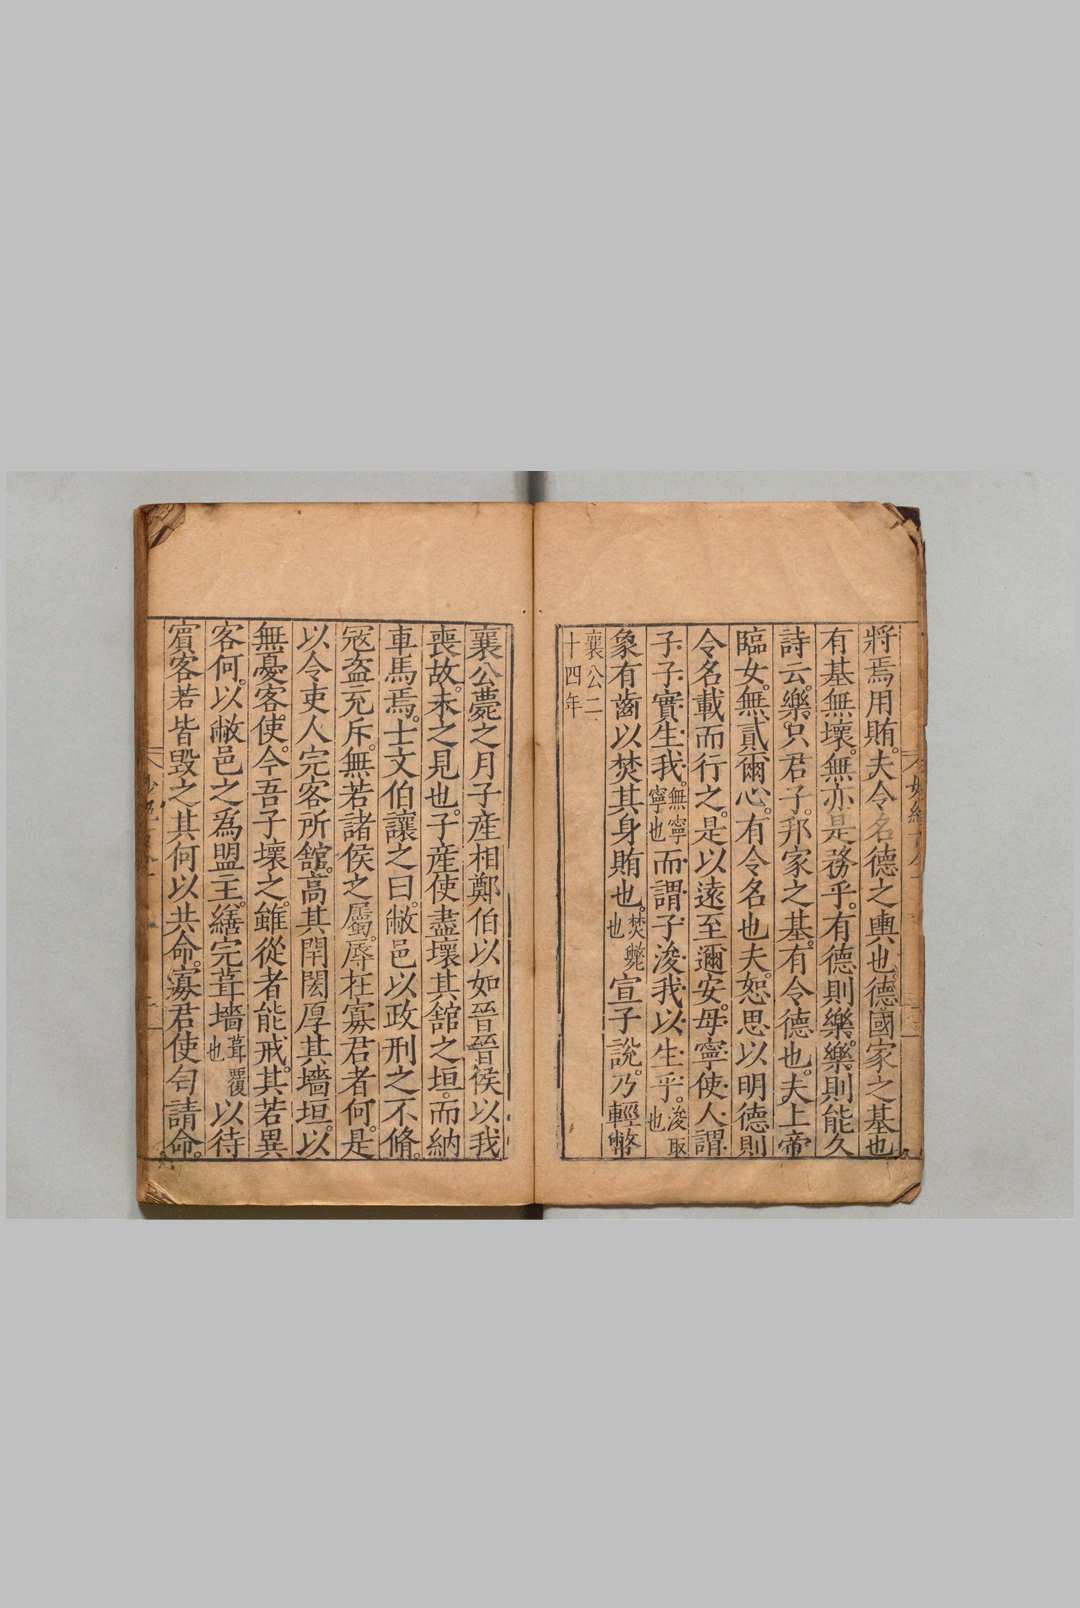 將焉用賄。夫令名德之輿也。德國家之基也
有基無壞。無亦是務乎。有德則樂。樂則能久
詩云。樂只君子。邦家之基。有令德也。夫上帝
臨女。無貳爾心。有令名也夫。恕思以明德則
令名載而行之。是以遠至邇安。毋寧使人謂
子。子實生我。無寧寧也而謂子浚我以生乎。浚取也
象有齒以焚其身賄也。焚斃也宣子說。乃輕幣
襄公二十四年
襄公薨之月子産相鄭伯以如晉晉侯以我
喪故。未之見也。子産使盡壞其舘之垣。而納
車馬焉。士文伯讓之曰。敝邑以政刑之不脩。
宼盜充斥。無若諸侯之屬。辱在寡君者何。是
以令吏人完客所舘。髙其閈閎厚其墻垣。以
無憂客使。今吾子壞之。雖從者能戒。其若異
客何。以敝邑之為盟主。繕完葺墻葺覆也以待
賔客若皆毀之其何以共命。寡君使匄請命。